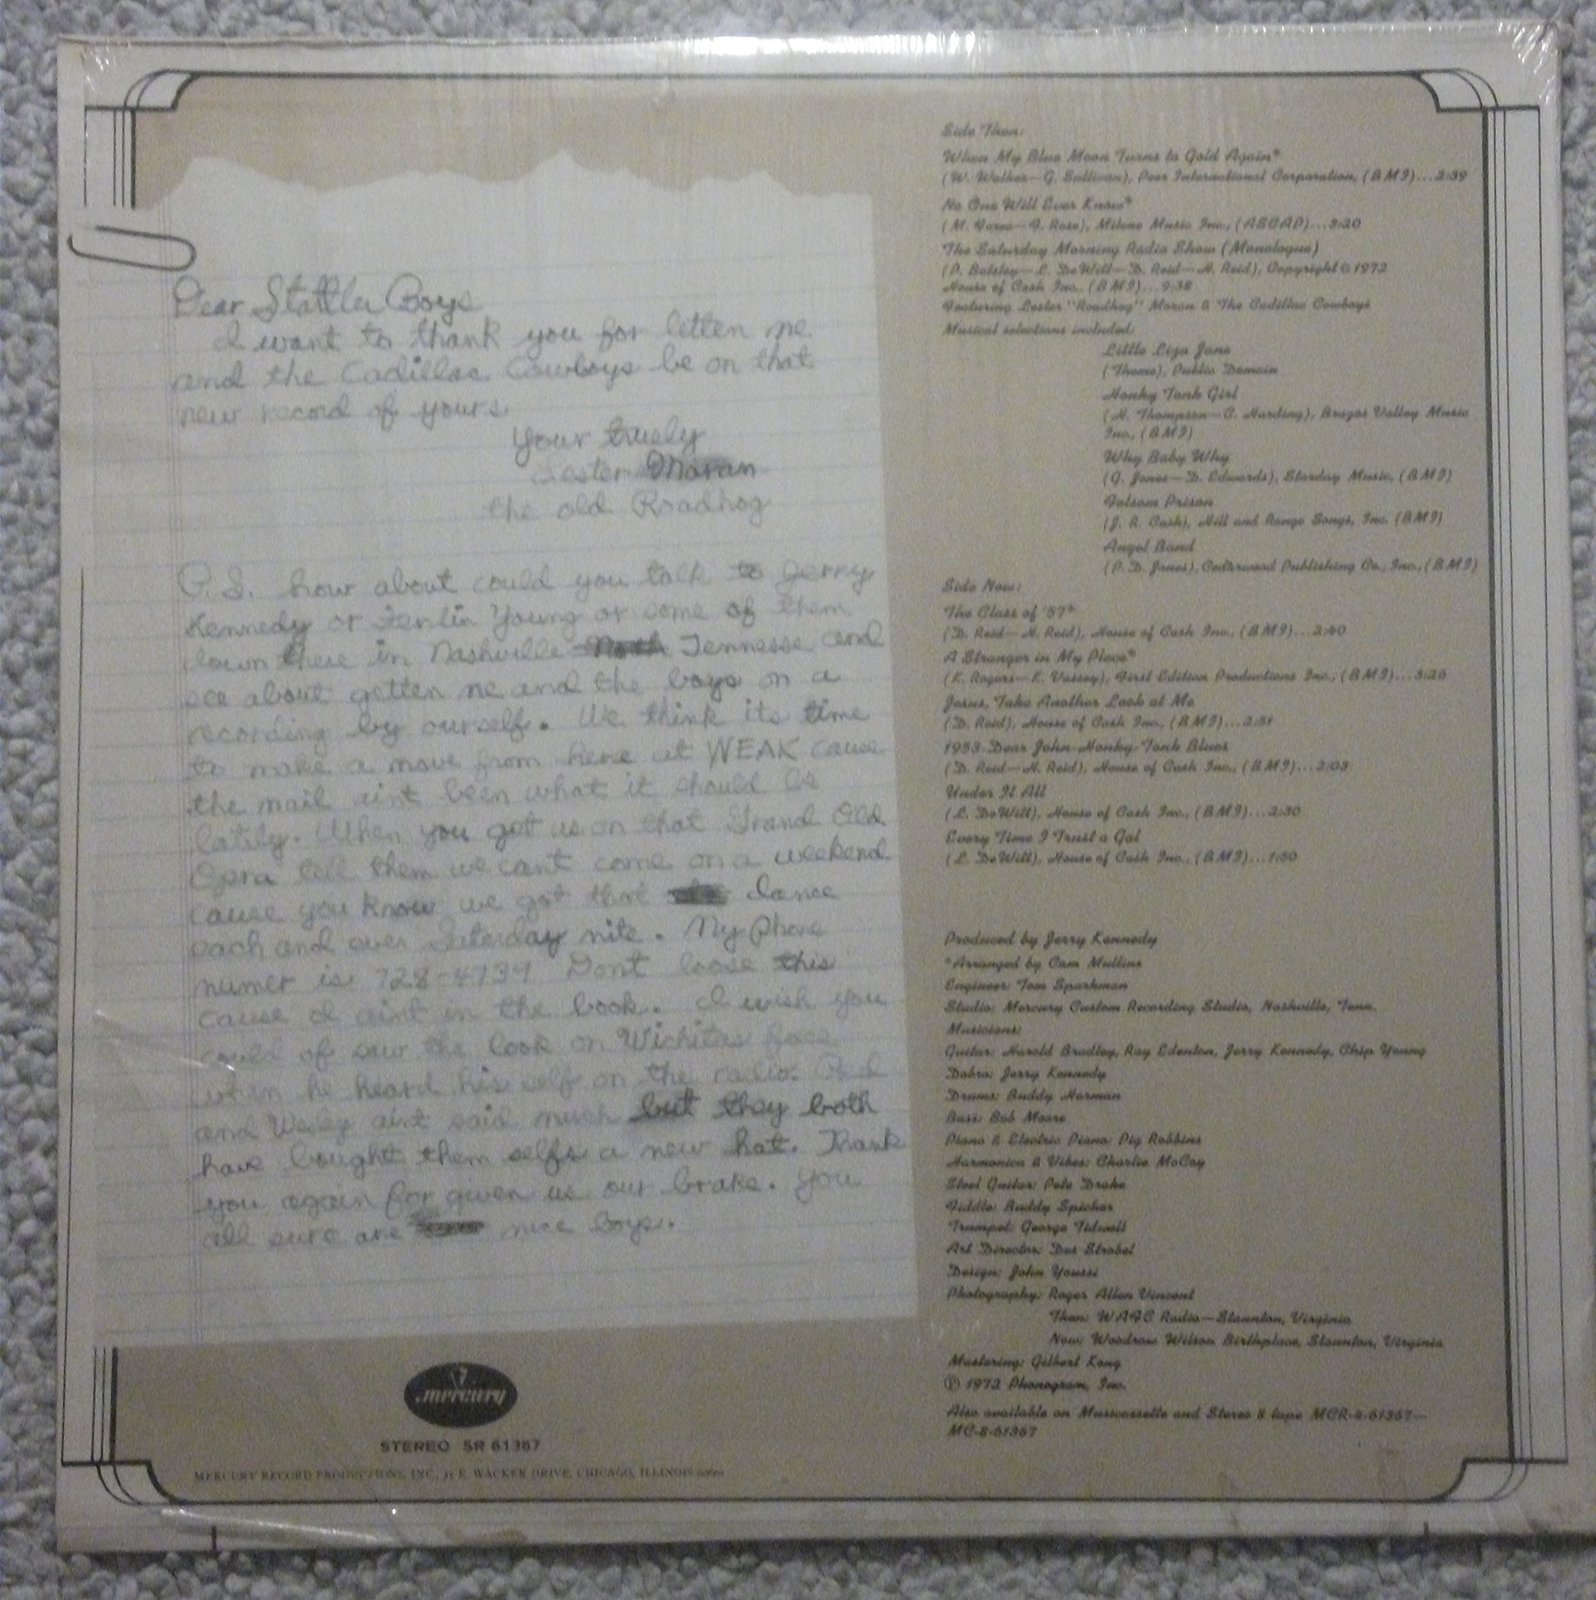 Dear Statller Boys
I want to thank you for letten me
and the Cadillac Cowboys be on that
new record of yours.
Your truely
Lester Moran
the old Roadhog
P.S. how about could you talk to Jerry
Kennedy or Ferlin Young or some of them
down there in Nashville Tennesse and
see about getten me and the boys on a
recording by ourself. We think its time
to make a move from here at WEAK cause
the mail aint been what it should be
lately. When you get us on that Grand Old
Opra tell them we cant come on a weekend
cause you know we got that dance
each and ever Saterday nite. My phone
numer is 728-4739 Dont loose this
cause I aint in the book. I wish you
could of saw the look on Wichitas face
when he heard his self on the radio. Red
and Wesley aint said mush but they both
have bought them selfs a new hat. Thank
you again for given us our brake. You
all sure are nice boys.
mercury
STEREO SR 61367
MERCURY RECORD PRODUCTIONS, INC., 35 E. WACKER DRIVE, CHICAGO, ILLINOIS 60601
Side Then:
When My Blue Moon Turns to Gold Again*
(W. Walker—G. Sullivan), Peer International Corporation, (BMI)...2:39
No One Will Ever Know*
(M. Foree—F. Rose), Milene Music Inc., (ASCAP)...3:20
The Saturday Morning Radio Show (Monologue)
(P. Balsley—L. DeWitt—D. Reid—H. Reid), Copyright © 1972
House of Cash Inc., (BMI)...9:38
Featuring Lester "Roadhog" Moran & The Cadillac Cowboys
Musical selections included:
Little Liza Jane
(Theme), Public Domain
Honky Tonk Girl
(H. Thompson—C. Harding), Brazos Valley Music
Inc., (BMI)
Why Baby Why
(G. Jones—D. Edwards), Starday Music, (BMI)
Folsom Prison
(J. R. Cash), Hill and Range Songs, Inc. (BMI)
Angel Band
(P. D. Jones), Cedarwood Publishing Co., Inc., (BMI)
Side Now:
The Class of '57*
(D. Reid—H. Reid), House of Cash Inc., (BMI)...2:40
A Stranger in My Place*
(K. Rogers—K. Vassey), First Edition Productions Inc., (BMI)...3:25
Jesus, Take Another Look at Me
(D. Reid), House of Cash Inc., (BMI)...2:51
1953-Dear John-Honky-Tonk Blues
(D. Reid—H. Reid), House of Cash Inc., (BMI)...2:03
Under It All
(L. DeWitt), House of Cash Inc., (BMI)...2:30
Every Time I Trust a Gal
(L. DeWitt), House of Cash Inc., (BMI)...1:50
Produced by Jerry Kennedy
*Arranged by Cam Mullins
Engineer: Tom Sparkman
Studio: Mercury Custom Recording Studio, Nashville, Tenn.
Musicians:
Guitar: Harold Bradley, Ray Edenton, Jerry Kennedy, Chip Young
Dobro: Jerry Kennedy
Drums: Buddy Harman
Bass: Bob Moore
Piano & Electric Piano: Pig Robbins
Harmonica & Vibes: Charlie McCoy
Steel Guitar: Pete Drake
Fiddle: Buddy Spicher
Trumpet: George Tidwell
Art Director: Des Strobel
Design: John Youssi
Photography: Roger Allen Vincent
Then: WAFC Radio—Staunton, Virginia
Now: Woodrow Wilson Birthplace, Staunton, Virginia
Mastering: Gilbert Kong
Ⓟ 1972 Phonogram, Inc.
Also available on Musicassette and Stereo 8 tape MCR-4-61367—
MC-8-61367